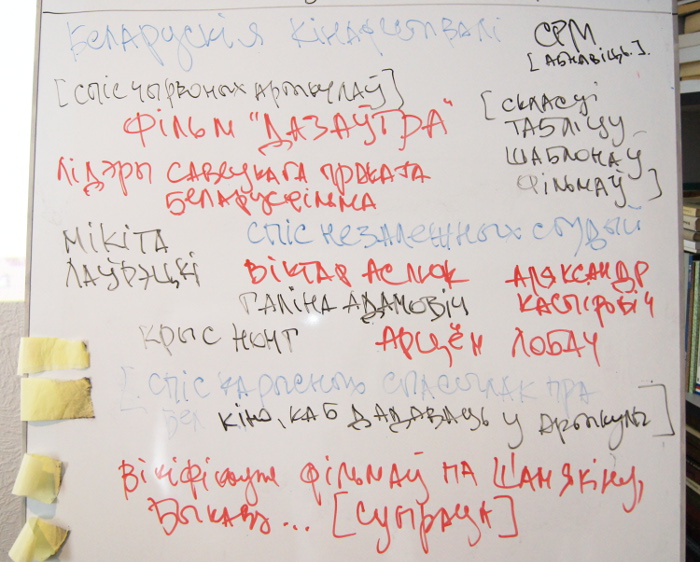 Беларускія кінафестывалі
СРМ
[абнавіць.].
[спіс чырвоных артыкулаў]
Фільм "Дазаўтра"
[скласці
табліцу
шаблонаў
фільмаў]
Лідэры савецкага праката
Беларусфільма
Мікіта
Лаўрэцкі
спіс незалежных студый
Віктар Аслюк
Аляксандр
Каспяровіч
Галіна Адамовіч
Крыс Нонг
Арцём Лобач
[спіс карысных спасылак пра
бел кіно, каб дадаваць у артыкулы]
Вікіфікуйце фільмаў па Шамякіну,
Быкаву... [Супраца]